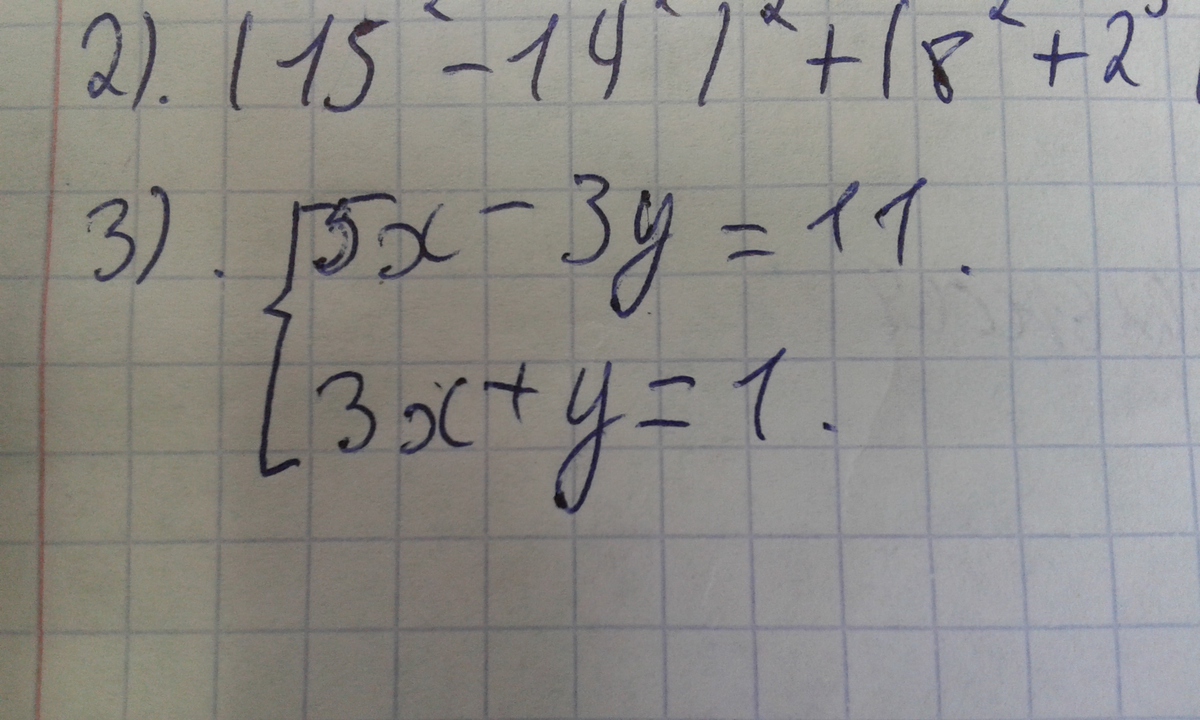 2). (15² - 14²)² + (8² + 2³)
3). { 5x - 3y = 11.
3x + y = 1.